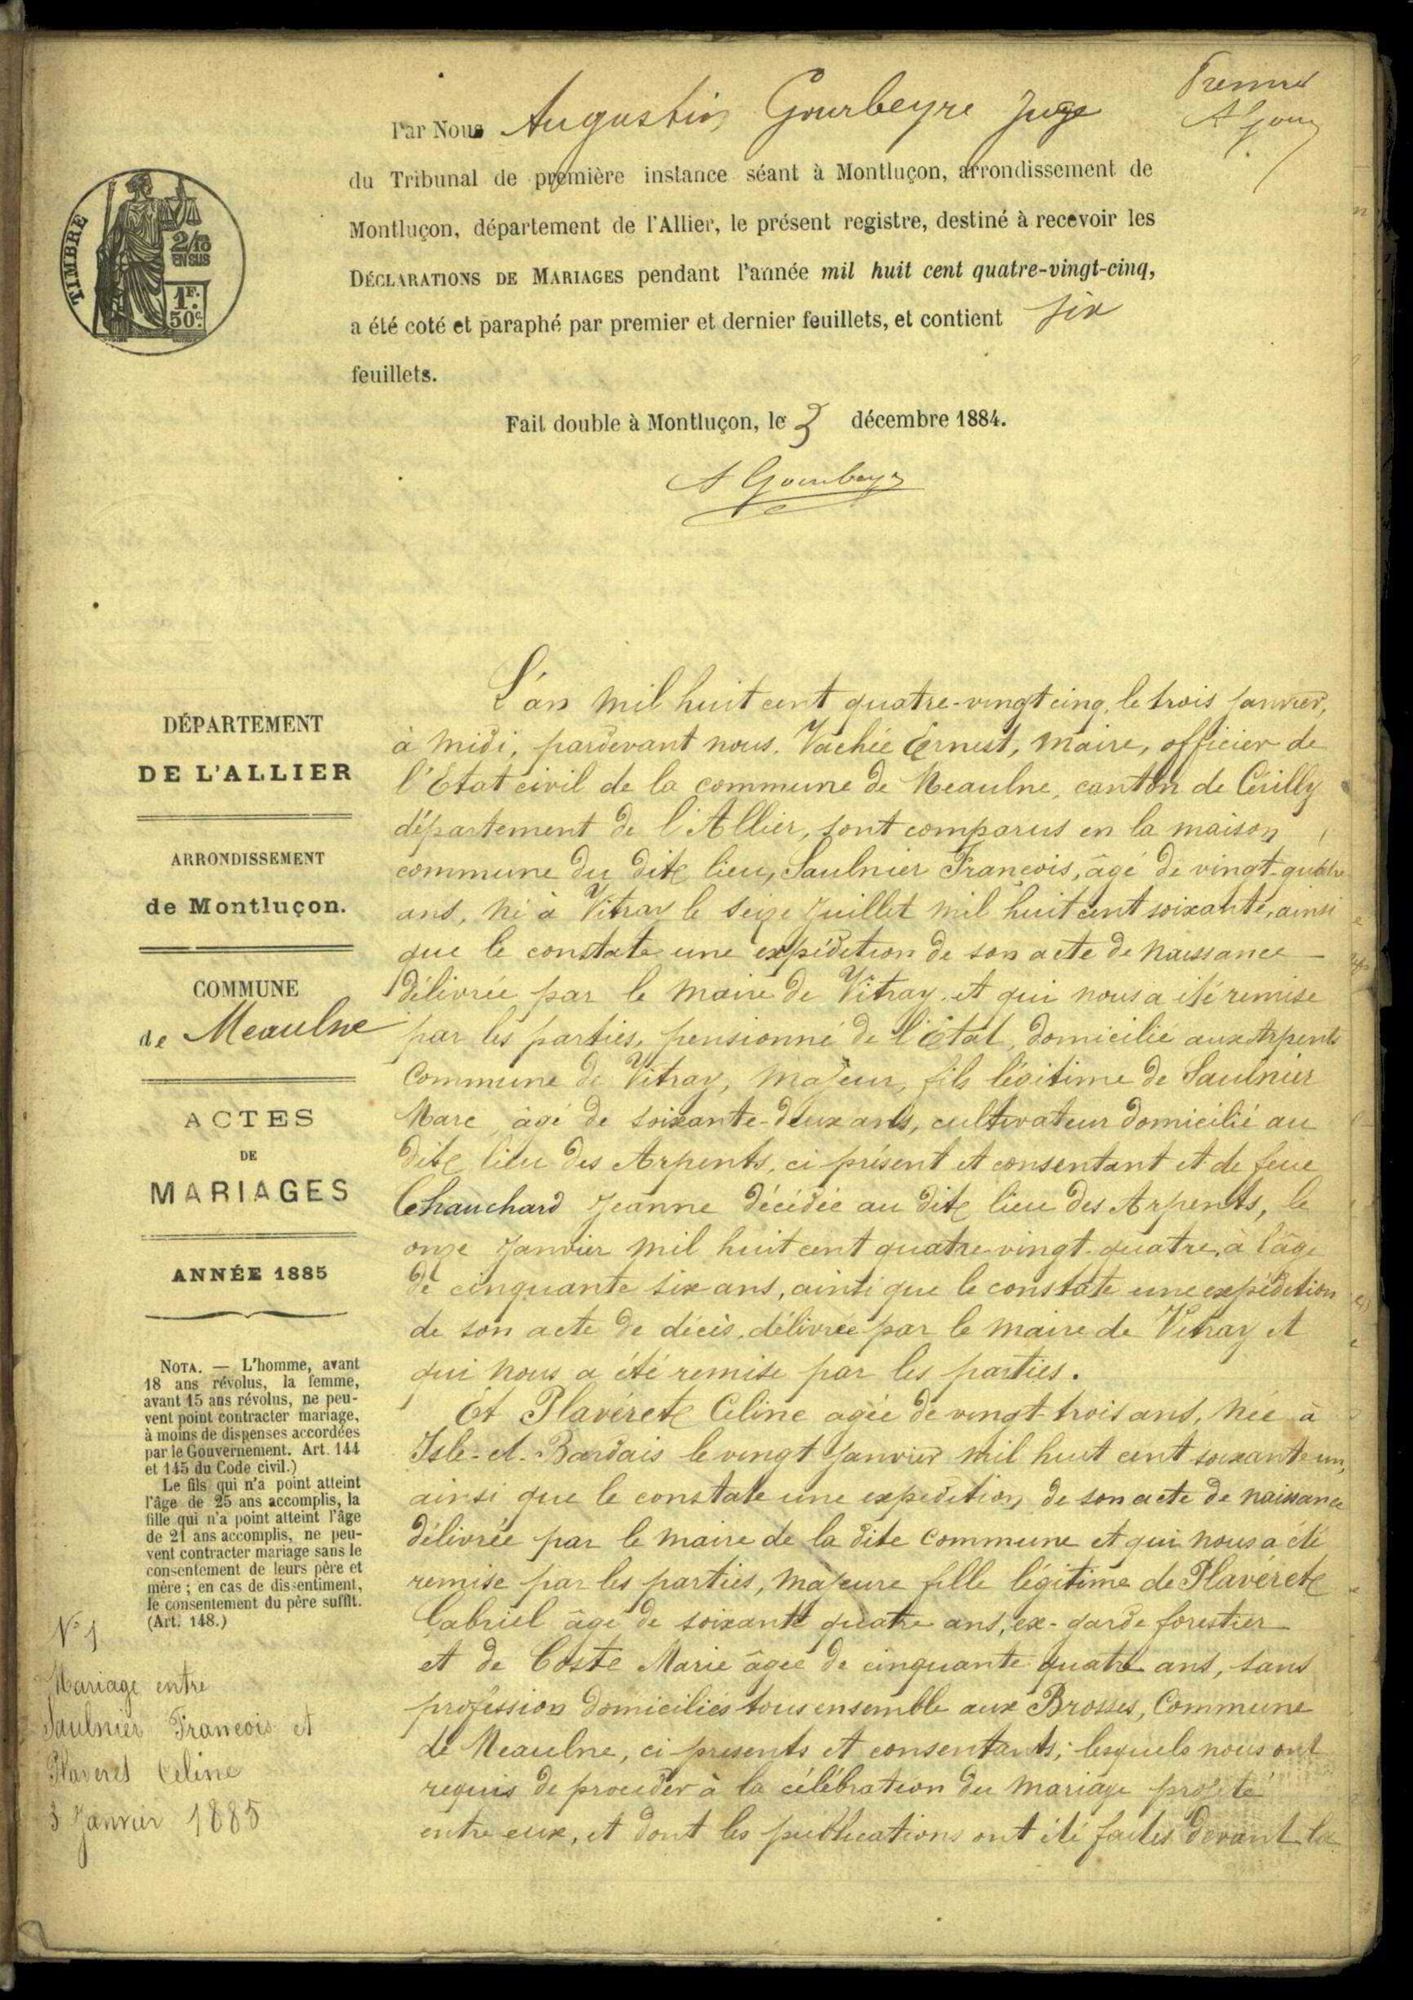 Premier
A Gour
Par Nous Augustin Gourbeyre Juge
du Tribunal de première instance séant à Montluçon, arrondissement de
Montluçon, département de l'Allier, le présent registre, destiné à recevoir les
DÉCLARATIONS DE MARIAGES pendant l'année mil huit cent quatre-vingt-cinq,
a été coté et paraphé par premier et dernier feuillets, et contient six
feuillets.
Fait double à Montluçon, le 3 décembre 1884.
A Gourbeyre
TIMBRE
2/10
EN SUS
1F.
50c.
DÉPARTEMENT
DE L'ALLIER
ARRONDISSEMENT
de Montluçon.
COMMUNE
de Meaulne
ACTES
DE
MARIAGES
ANNÉE 1885
NOTA. — L'homme, avant
18 ans révolus, la femme,
avant 15 ans révolus, ne peu-
vent point contracter mariage,
à moins de dispenses accordées
par le Gouvernement. Art. 144
et 145 du Code civil.)
Le fils qui n'a point atteint
l'âge de 25 ans accomplis, la
fille qui n'a point atteint l'âge
de 21 ans accomplis, ne peu-
vent contracter mariage sans le
consentement de leurs père et
mère ; en cas de dissentiment,
le consentement du père suffit.
(Art. 148.)
N° 1
Mariage entre
Saulnier Francois et
Plaveret Celine
3 Janvier 1885
L'an mil huit cent quatre-vingt cinq, le trois janvier,
à midi, pardevant nous. Vachée Ernest, maire, officier de
l'Etat civil de la commune de Meaulne, canton de Cérilly
département de l'Allier, sont comparus en la maison
commune du dite lieu, Saulnier Francois, âgé de vingt-quatre
ans, né à Vitray le seize juillet mil huit cent soixante, ainsi
que le constate une expédition de son acte de naissance
délivrée par le maire de Vitray et qui nous a été remise
par les parties, pensionné de l'Etat, domicilié aux Arpents
commune de Vitray, majeur, fils légitime de Saulnier
Marc âgé de soixante-deux ans, cultivateur domicilié au
dite lieu des Arpents, ci présent et consentant et de feue
Chauchard Jeanne décédée au dite lieu des Arpents, le
onze Janvier mil huit cent quatre-vingt-quatre, à l'âge
de cinquante six ans, ainsi que le constate une expédition
de son acte de décès, délivrée par le maire de Vitray et
qui nous a été remise par les parties.
Et Plavérete Celine agée de vingt-trois ans, née à
Isle-et-Bardais le vingt janvier mil huit cent soixante un,
ainsi que le constate une expédition de son acte de naissance
délivrée par le maire de la dite commune et qui nous a été
remise par les parties, majeure fille légitime de Plavérete
Gabriel âgé de soixante quatre ans, ex-garde forestier
et de Coste Marie âgée de cinquante quatre ans, sans
profession domiciliés tous ensemble aux Brosses, Commune
de Meaulne, ci présents et consentants; lesquels nous ont
requis de procéder à la célébration du mariage projeté
entre eux, et dont les publications ont été faites devant la